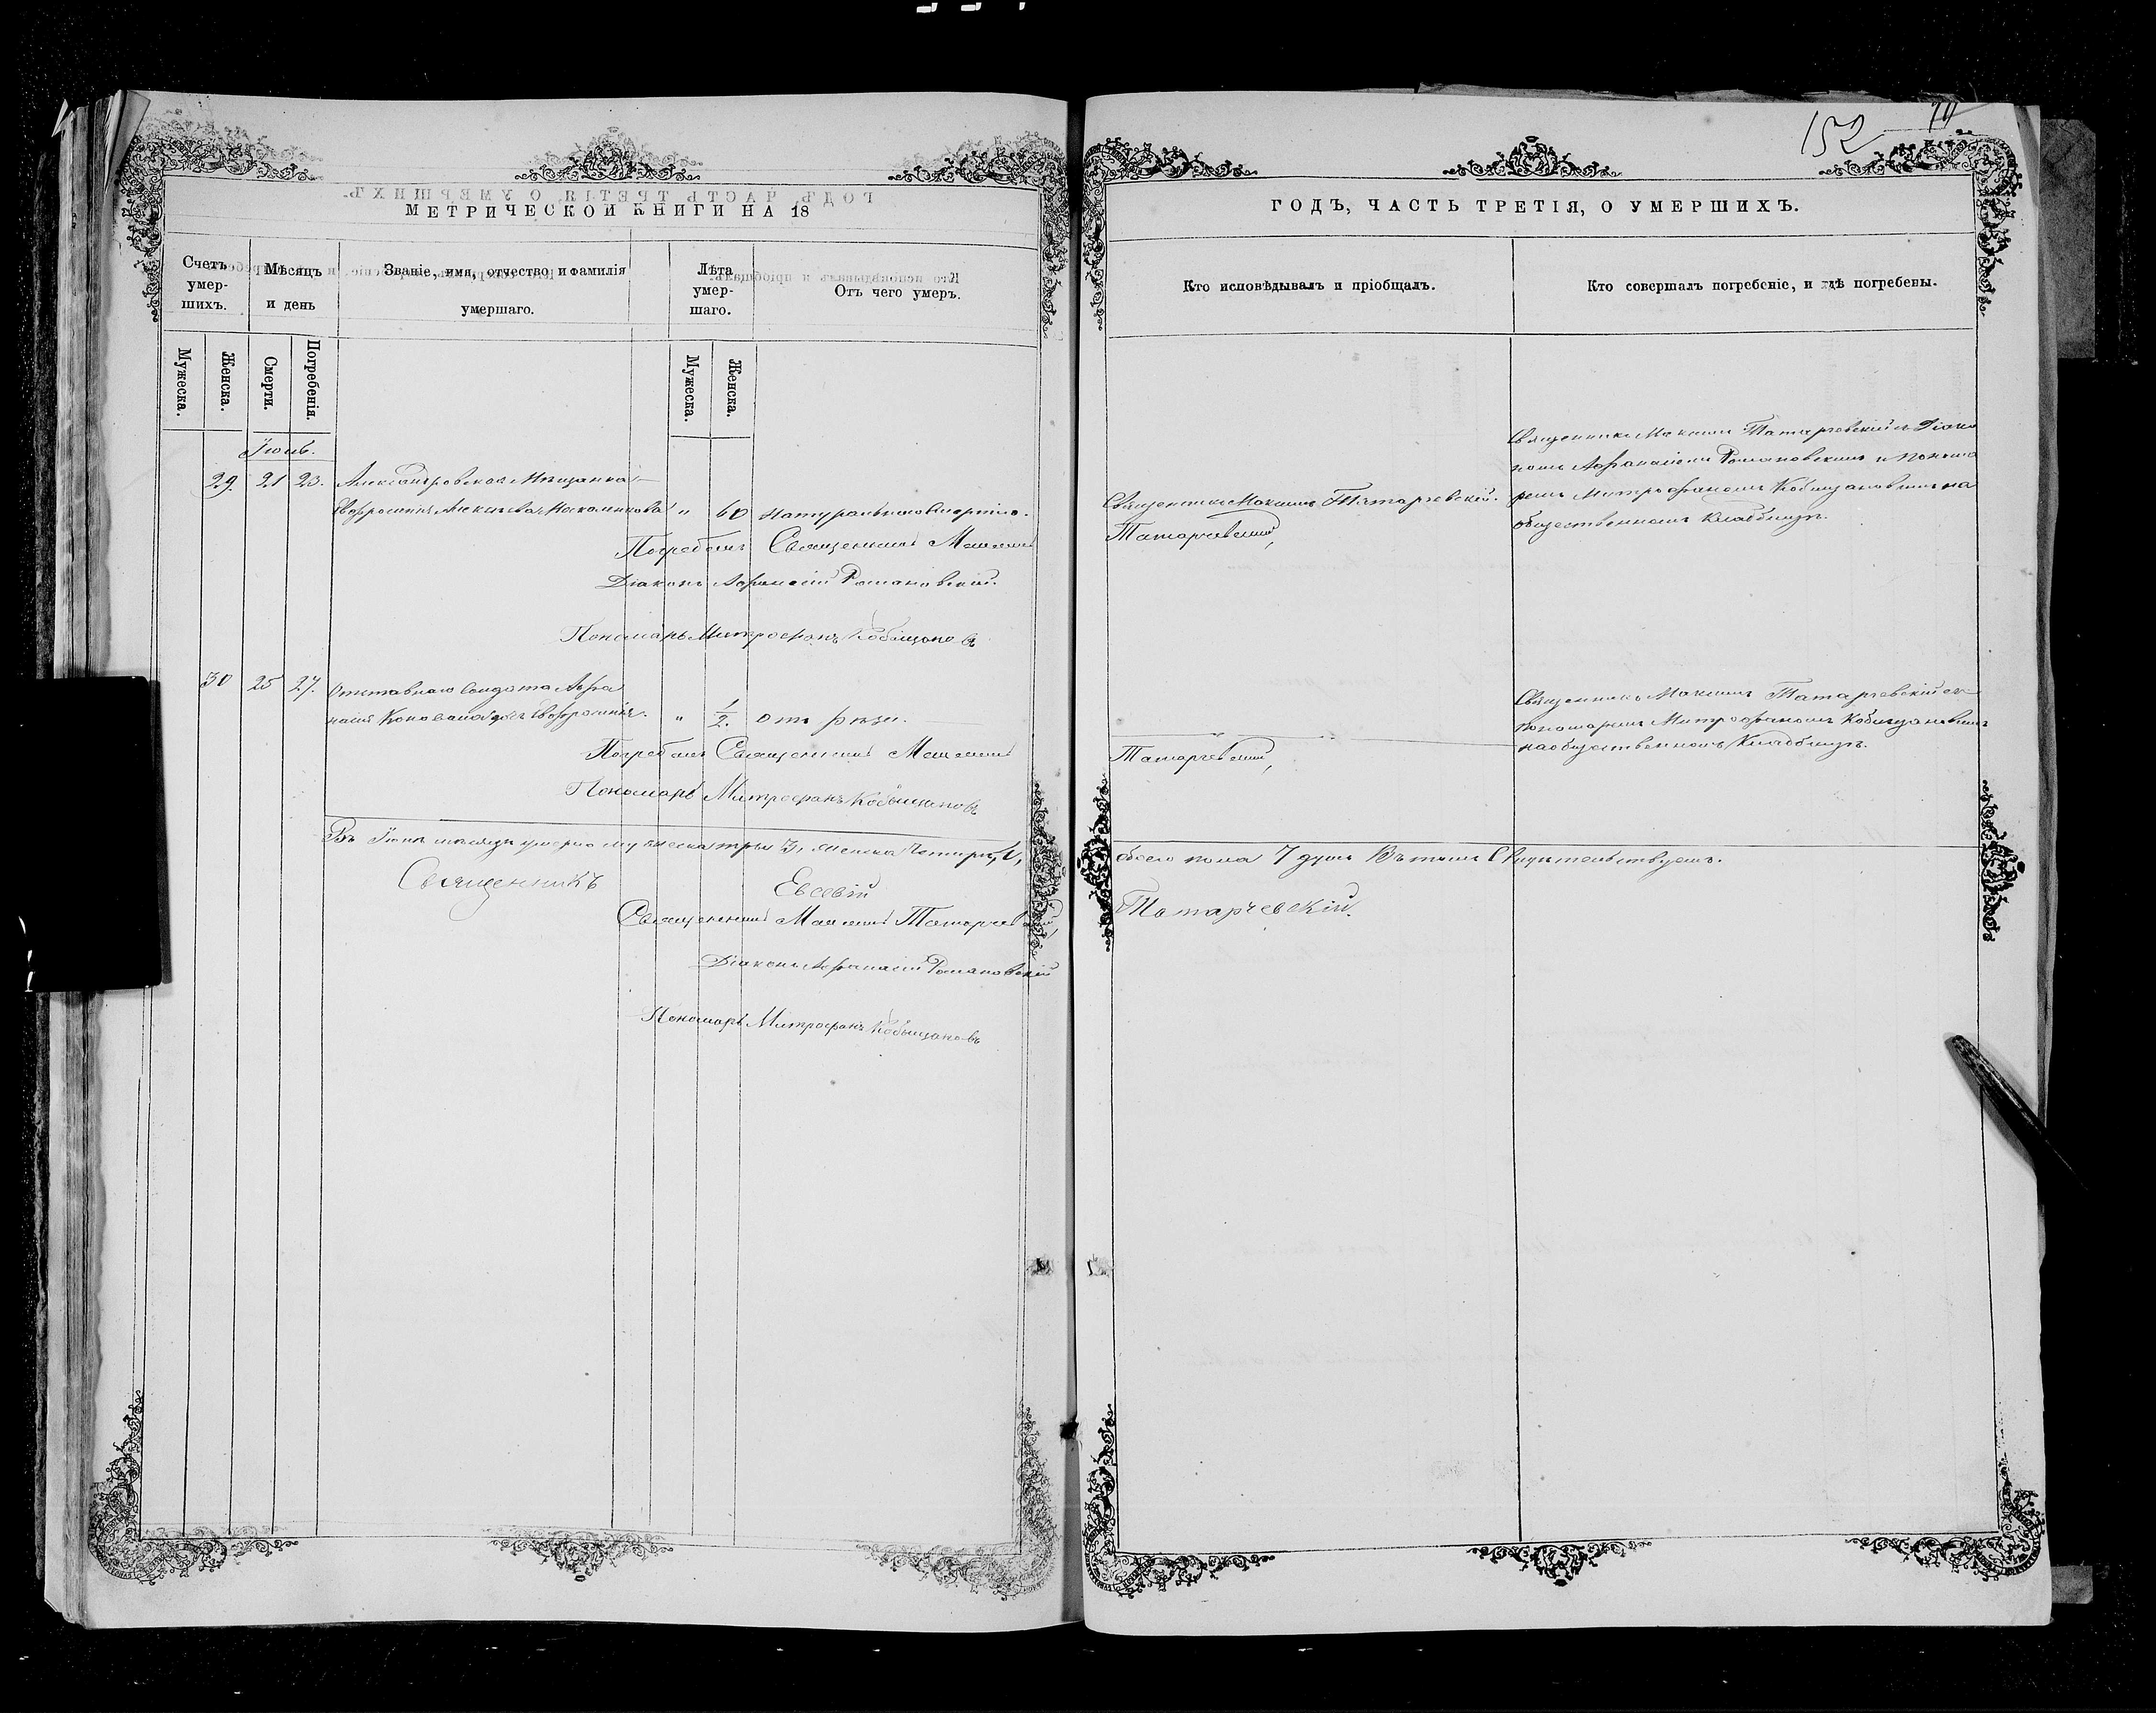 152
МЕТРИЧЕСКОЙ КНИГИ НА 18
ГОДЪ, ЧАСТЬ ТРЕТІЯ, О УМЕРШИХЪ.
Счетъ умер-шихъ.
Мѣсяцъ и день
Званіе, имя, отчество и фамилія умершаго.
Лѣта умер-шаго.
Отъ чего умеръ.
Кто исповѣдывалъ и пріобщалъ.
Кто совершалъ погребеніе, и гдѣ погребены.
Мужеска.
Женска.
Смерти.
Погребенія.
Мужеска.
Женска.
29. 21 23. Александровская Мѣщанка
Евфросинія „ 60 натуральною смертію.
Священникъ Максимъ Татарчевскій.
Священникъ Максимъ Татарчевскій съ Діако
номъ Афанасіемъ Романовскимъ и Поном
аремъ Митрофаномъ Кобыщановымъ на
общественномъ кладбищѣ.
Погребалъ Священникъ Максимъ Татарчевскій,
Діаконъ Афанасій Романовскій.
Пономарь Митрофанъ Кобыщановъ
30 25 27. Отставнаго Солдата Афа
насія дочь Евфросинія. „ 1/2.
Священникъ Максимъ Татарчевскій съ
Пономаремъ Митрофаномъ Кобыщановымъ
на общественномъ Кладбищѣ.
Погребалъ Священникъ Максимъ Татарчевскій,
Пономарь Митрофанъ Кобыщановъ
Въ мѣсяцѣ умерло мужеска три 3, женска четыре, 4, обоего пола 7 душъ Въ томъ Свидѣтельствуемъ.
Священникъ Евсевій Татарчевскій.
Священникъ Максимъ Татарчевскій,
Діаконъ Афанасій Романовскій
Пономарь Митрофанъ Кобыщановъ